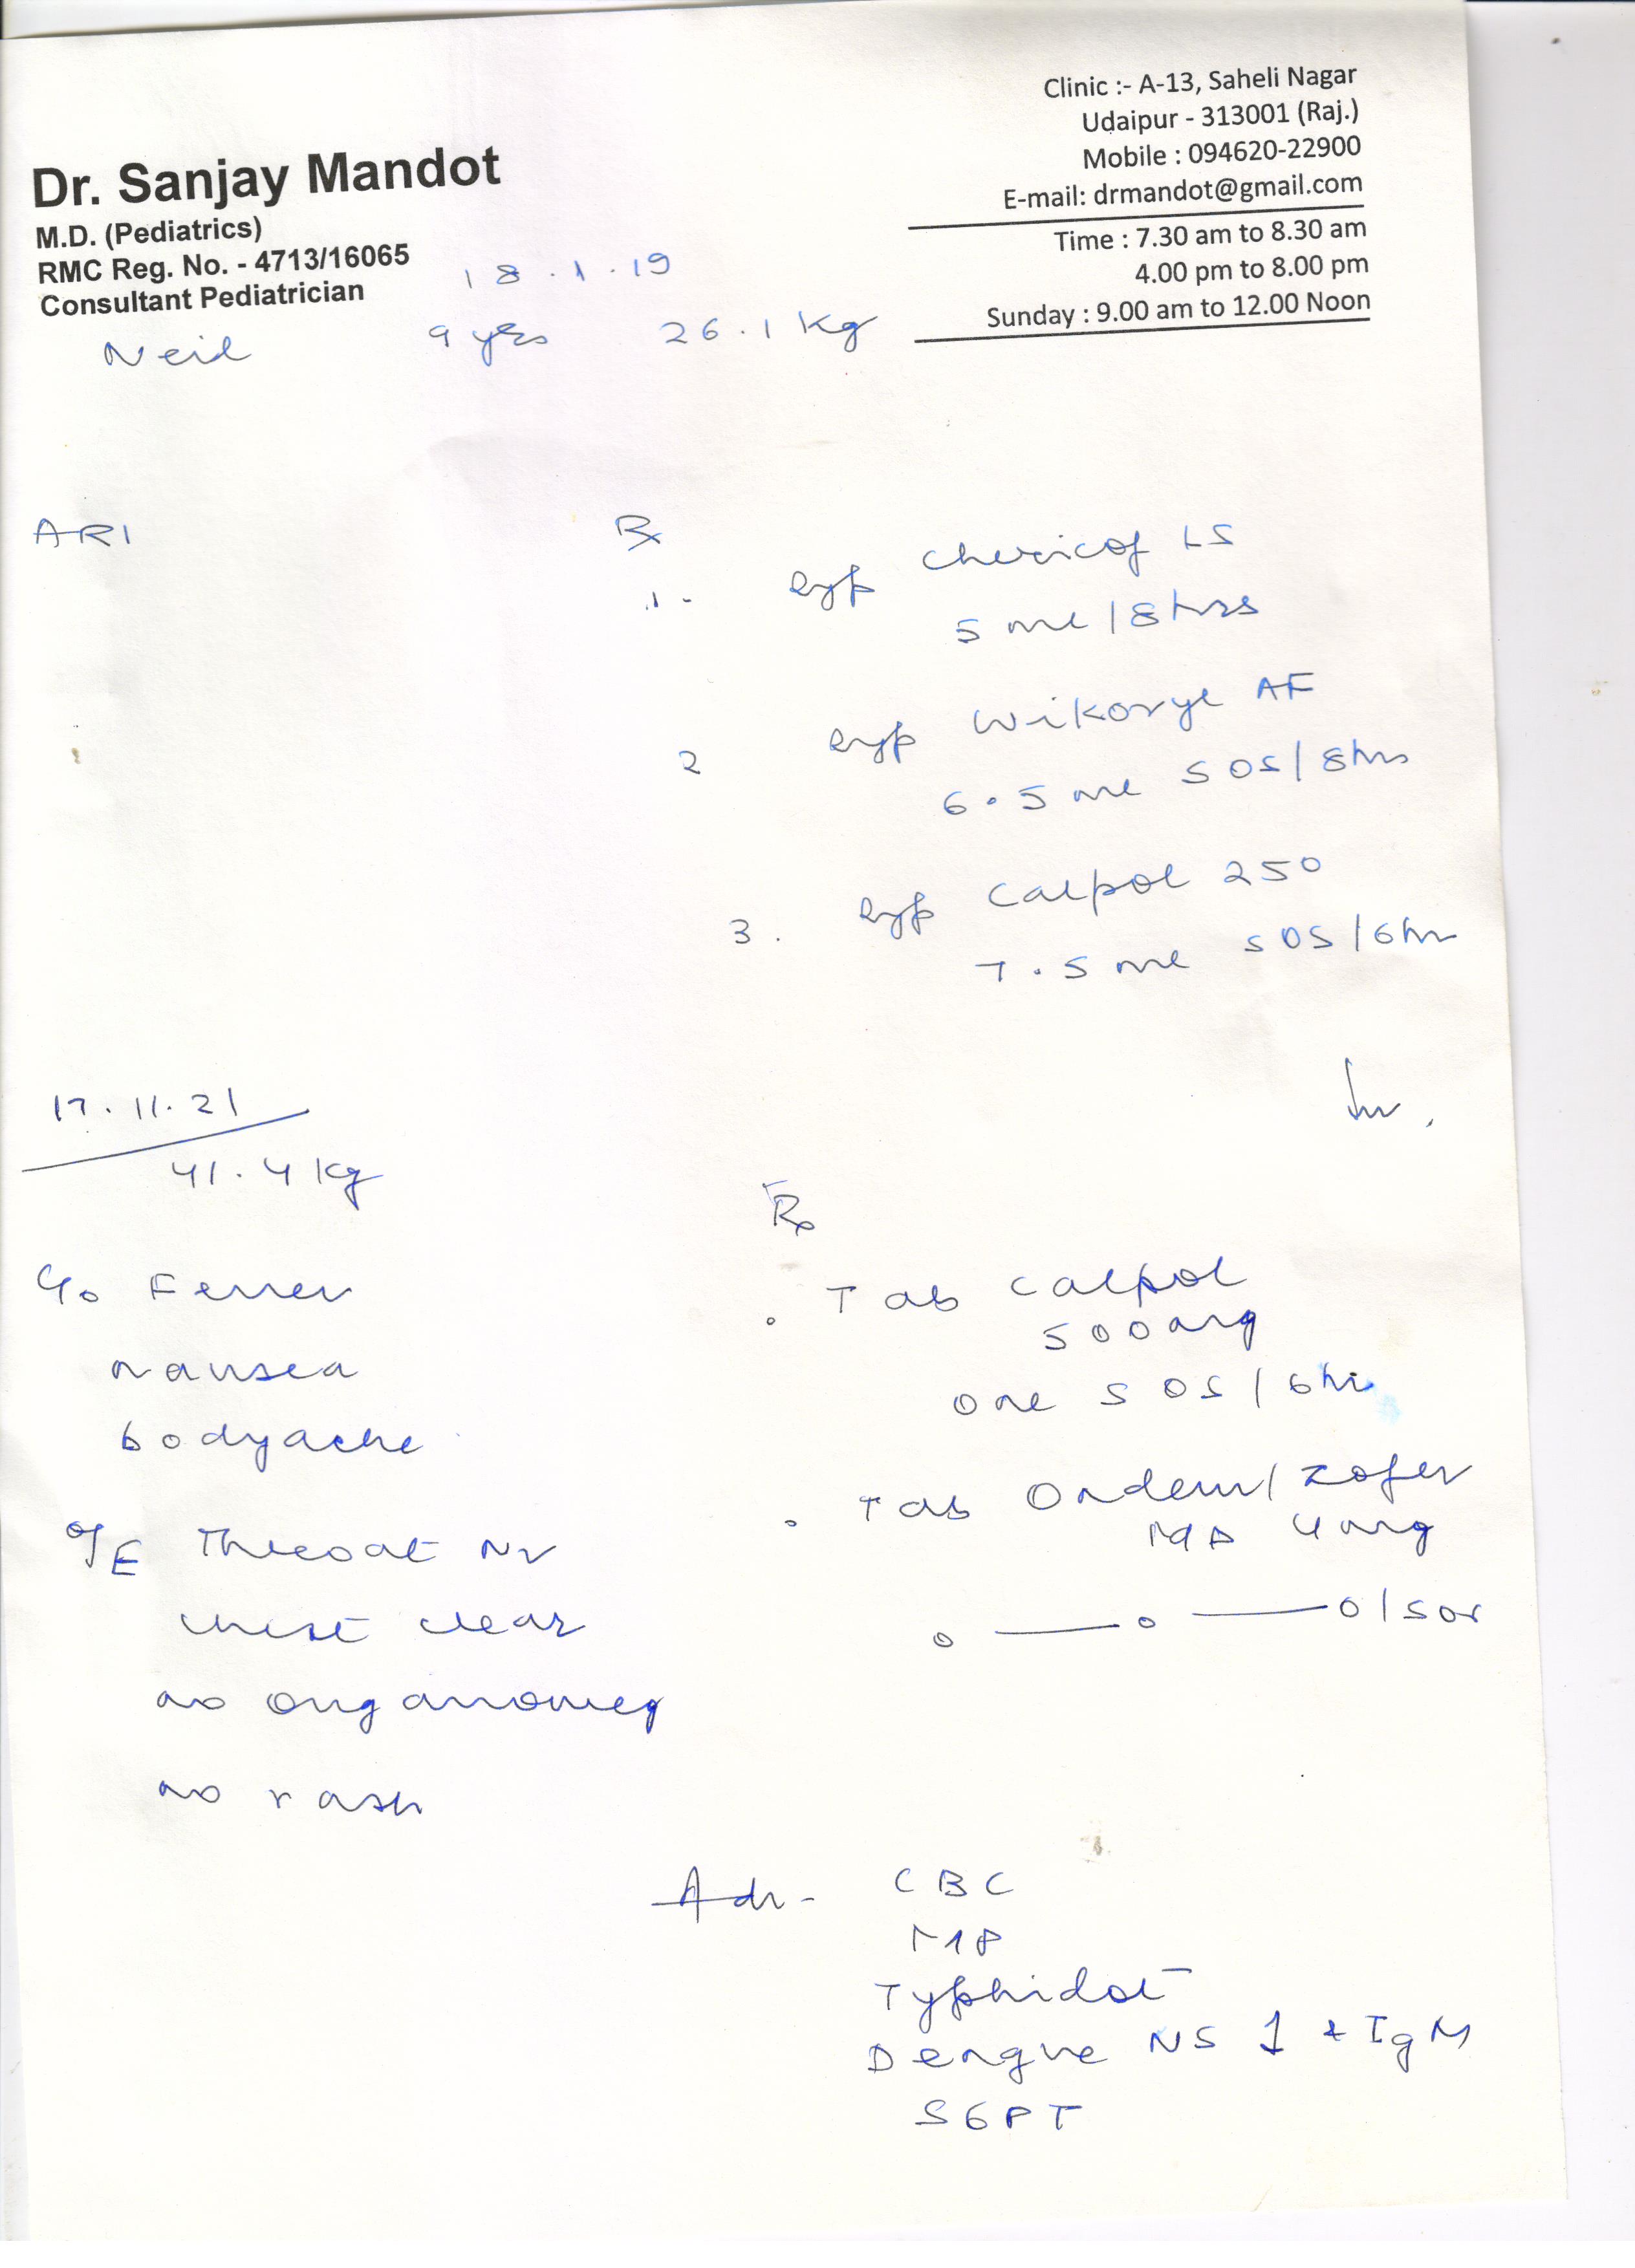 Clinic :- A-13, Saheli Nagar
Udaipur - 313001 (Raj.)
Mobile : 094620-22900
E-mail: drmandot@gmail.com
Time : 7.30 am to 8.30 am
4.00 pm to 8.00 pm
Sunday : 9.00 am to 12.00 Noon
Dr. Sanjay Mandot
M.D. (Pediatrics)
RMC Reg. No. - 4713/16065
Consultant Pediatrician
18.1.19
Neil 9 yrs 26.1 kg
ARI
Rx
1- Syp Chericof LS
5 ml/8hrs
2 Syp Wikoryl AF
6.5 ml SOS/8hrs
3. Syp Calpol 250
7.5 ml SOS/6hr
17.11.21
41.4 kg
C/o Fever
nausea
bodyache
O/E Throat
chest clear
no organomeg
no rash
Rx
Tab Calpol
500mg
one SOS/6hr
Tab Ondem/Zofer
MD 4mg
o — o — o/sos
Adv- CBC
MP
Typhidot
Dengue NS 1 + IgM
SGPT